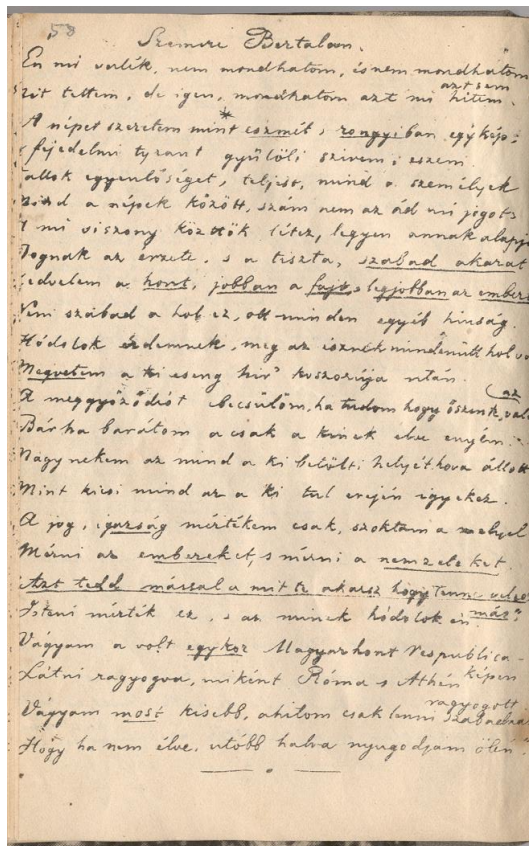 53
Szemere Bertalan.
En mi valék, nem mondhatom, is nem mondhatom
azt sem
mit tettem, de igen, mondhatom azt mi hitem.
A népet szeretem mint eszmét, rongyiban egykép;
fejedelmi tyrant gyűlöli szivem; eszem.
állok egyenlőséget, teljest, mind a személyek
mind a népek között, szám nem az ád ki jogot
A mi viszony köztök létez, legyen annak alapja
Jognak az érzete, s a tiszta, szabad akarat
Kedvelem a hont, jobban a fajt, s legjobban az embert
Nem szabad a hol ez, ott minden egyéb hiuság.
Hódolok érdemnek, meg az észnek mindenütt hol
Megvetem a ki eseng hir' koszorúja után.
az
A meggyőződést becsülöm, ha tudom hogy őszinte
Bárha barátom a csak a kinek elve enyém.
Nagy nekem az mind a ki betölti helyét hova állott
Mint kicsi mind az a ki tul erején igyekez.
A jog, igazság mértékem csak, szoktam a melyel
Mérni az embereket, s mérni a nemzeteket.
Azt tedd mással a mit te akarsz hogy tenne veled
más"
Isteni mérték ez, s az minek hódolok én
Vágyam a volt egykor Magyarhont Respublica-
képen
Látni ragyogva, miként Róma s Athén
ragyogott
Vágyam most kisebb, ahitom csak lenni szabadna
Hogy ha nem élve, utóbb halva nyugodjam ölén.